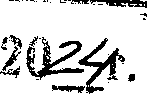 2024г.